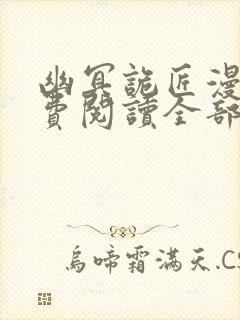 幽冥詭匠漫
費閱讀全部
烏啼霜滿天.CS